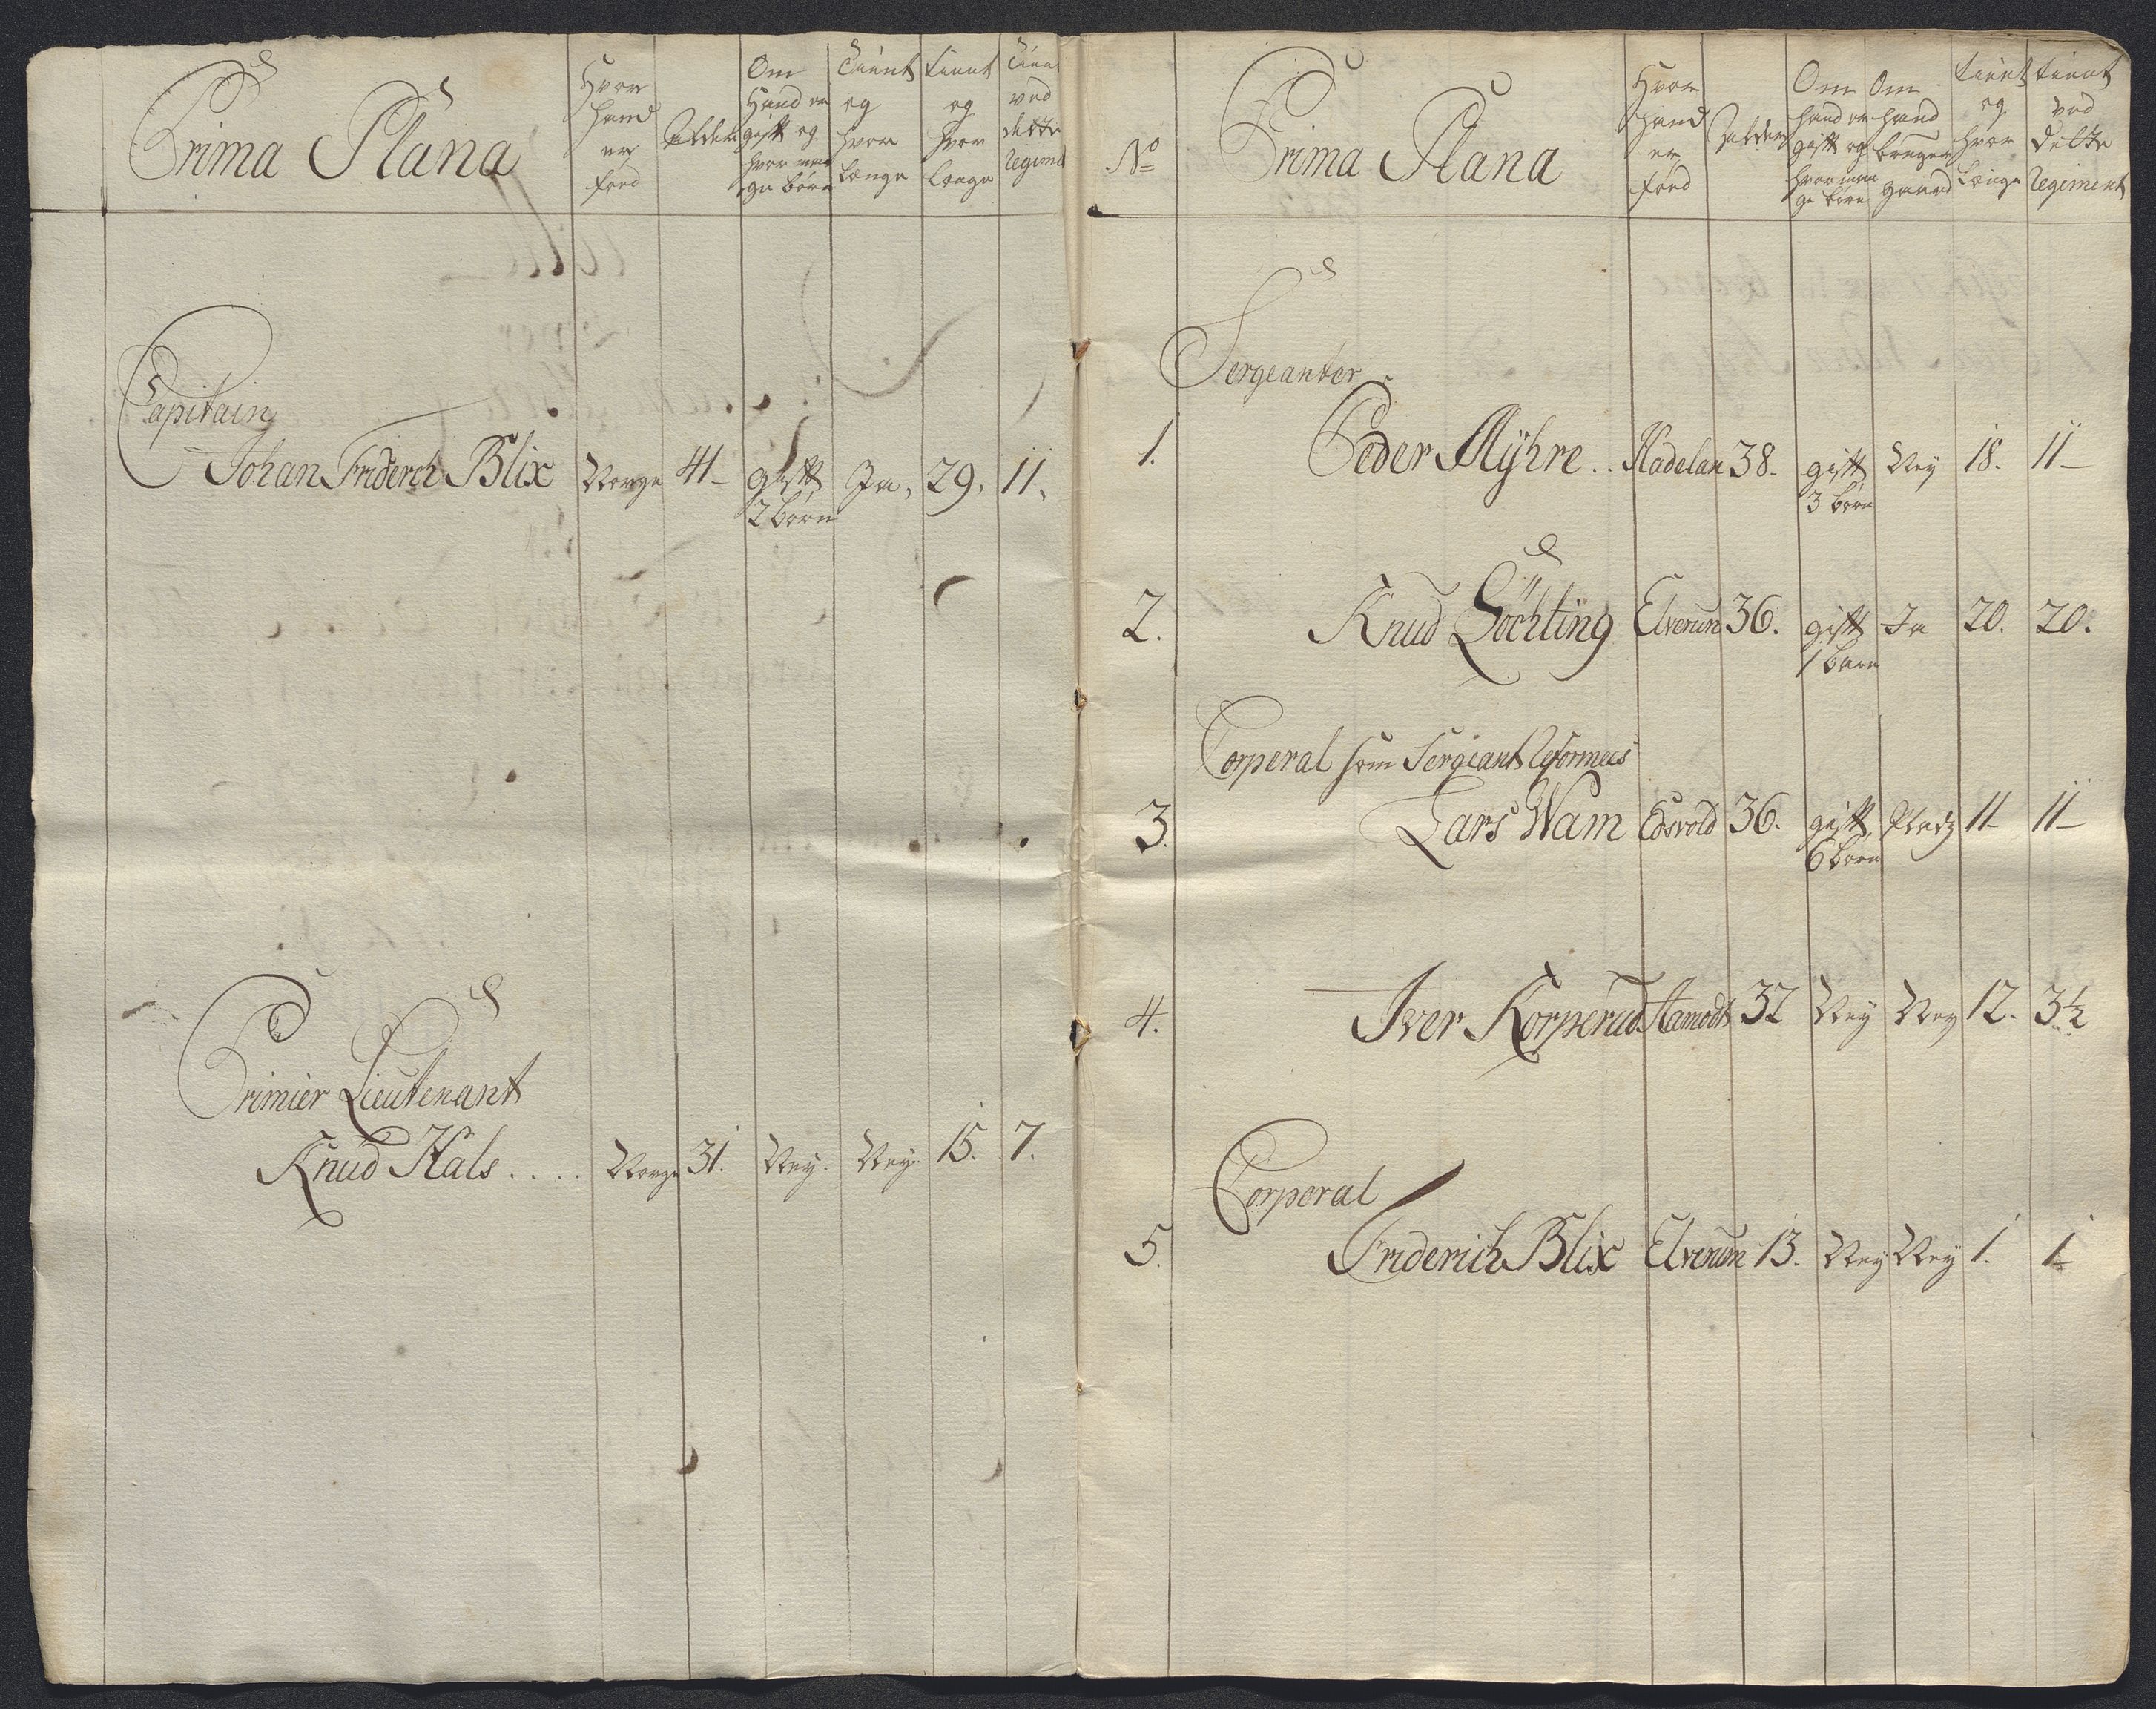 Prima Plana
Hvor hand er Fød
Alder
Om Hand er gift og hvor mange børn
Tient og hvor Længe
tient og hvor Længe
Tient ved dette Regim
Capitain
Johan Friderch Blix Norge 41 gift 2 børn Ja, 29, 11,
Primier Lieutenant
Knud Hals .... Norge 31. Ney. Ney. 15. 7.
No
Prima Plana
Hvor hand er Fød
Alder
Om hand er gift og hvor mange børn
Om hand bruger gaard
tient og hvor Længe
tient ved dette Regiment
Sergeanter
1. Peder Myhre .. Hadelan 38. gift 3 børn Ney 18. 11
2. Knud Løchting Elverum 36. gift 1 barn Ja 20. 20.
Corperal som Sergeant Reformees
3. Lars Wam Edsvold 36. gift 6 børn Pladz 11 11
4. Iver Korperud Aamodt 32 Ney Ney 12. 3½
Corperal
5. Friderich Blix Elverum 13. Ney Ney 1. 1